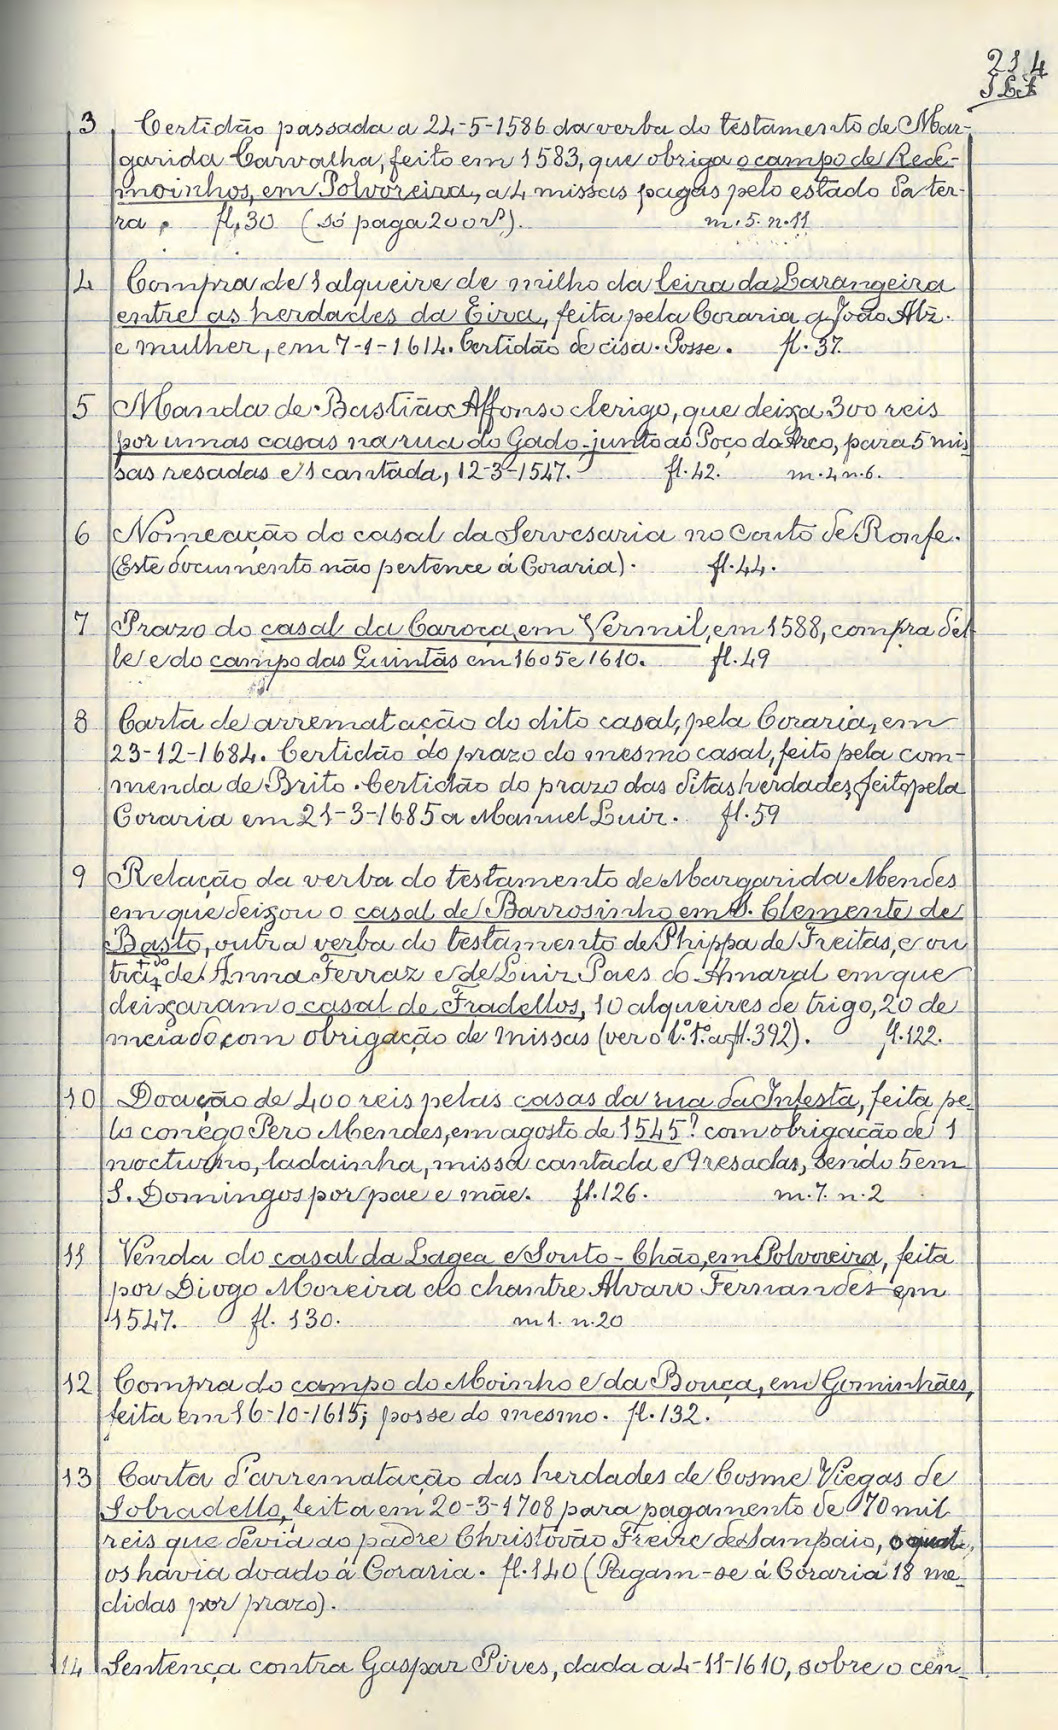 214
3 Certidão passada a 24-5-1586 da verba do testamento de Mar-
garida Carvalha, feito em 1583, que obriga o campo de Rede-
moinhos, em Polvoreira, a 4 missas pagas pelo estado da ter-
ra. fl. 30 (só paga 200 rs). m. 5. n. 11
4 Compra de 1 alqueire de milho da leira da Larangeira
entre as herdades da Eira, feita pela Coraria a João Alz.
e mulher, em 7-1-1614. Certidão de cisa. Posse. fl. 37.
5 Manda de Bastião Affonso clerigo, que deixa 300 reis
por umas casas na rua do Gado, junto ao Poço do Arco, para 5 mis-
sas resadas e 1 cantada, 12-3-1547. fl. 42. m. 4 n. 6.
6 Nomeação do casal da Servesaria no Couto de Ronfe.
(Este documento não pertence á Coraria). fl. 44.
7 Prazo do casal da Caroça, em Vermil, em 1588, compra del-
le e do campo das Quintãs em 1605 e 1610. fl. 49
8 Carta de arrematação do dito casal, pela Coraria, em
23-12-1684. Certidão do prazo do mesmo casal, feito pela com-
menda de Brito. Certidão do prazo das ditas herdades, feito pela
Coraria em 21-3-1685 a Manuel Luiz. fl. 59
9 Relação da verba do testamento de Margarida Mendes
em que deixou o casal de Barrosinho em S. Clemente de
Basto, outra verba do testamento de Phippa de Freitas, e ou
tra do de Anna Ferraz e de Luiz Paes do Amaral em que
deixaram o casal de Fradellos, 10 alqueires de trigo, 20 de
meiado, com obrigação de missas (ver o l.º 1.º a fl. 392). fl. 122.
10 Doação de 400 reis pelas casas da rua da Infesta, feita pe-
lo conego Pero Mendes, em agosto de 1545? com obrigação de 1
nocturno, ladainha, missa cantada e 9 resadas, sendo 5 em
S. Domingos por pae e mãe. fl. 126. m. 7. n. 2
11 Venda do casal da Lagea e Souto-Chão, em Polvoreira, feita
por Diogo Moreira ao chantre Alvaro Fernandes em
1547. fl. 130. m 1. n. 20
12 Compra do campo do Moinho e da Bouça, em Gominhães,
feita em 16-10-1615; posse do mesmo. fl. 132.
13 Carta d'arrematação das herdades de Cosme Viegas de
Sobradello, feita em 20-3-1708 para pagamento de 70 mil
reis que devia ao padre Christovão Freire de Sampaio, o qual
os havia doado á Coraria. fl. 140 (Pagam-se á Coraria 18 me-
didas por prazo).
14 Sentença contra Gaspar Pires, dada a 4-11-1610, sobre o cen-